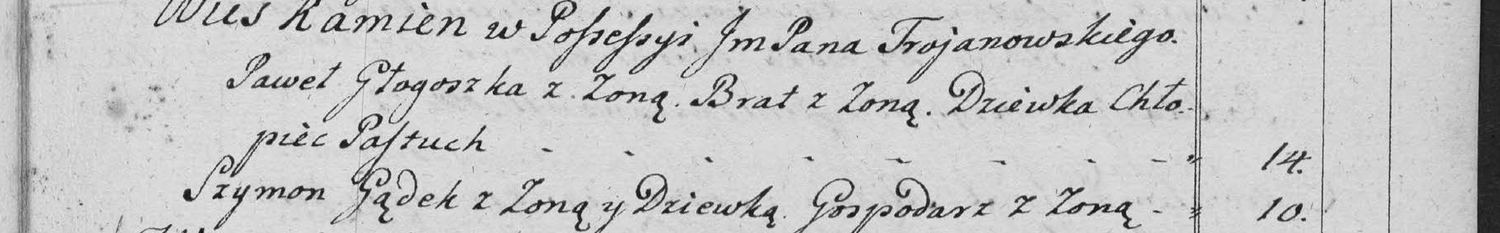 Wieś Kamien w Possessyi Jm Pana Trojanowskiego.
Paweł Głogoszka z Zoną. Brat z Zoną. Dziewka Chło-
piec Pastuch - - - - - - - - 14.
Szymon Gądek z Zoną y Dziewką. Gospodarz z Zoną - - 10.